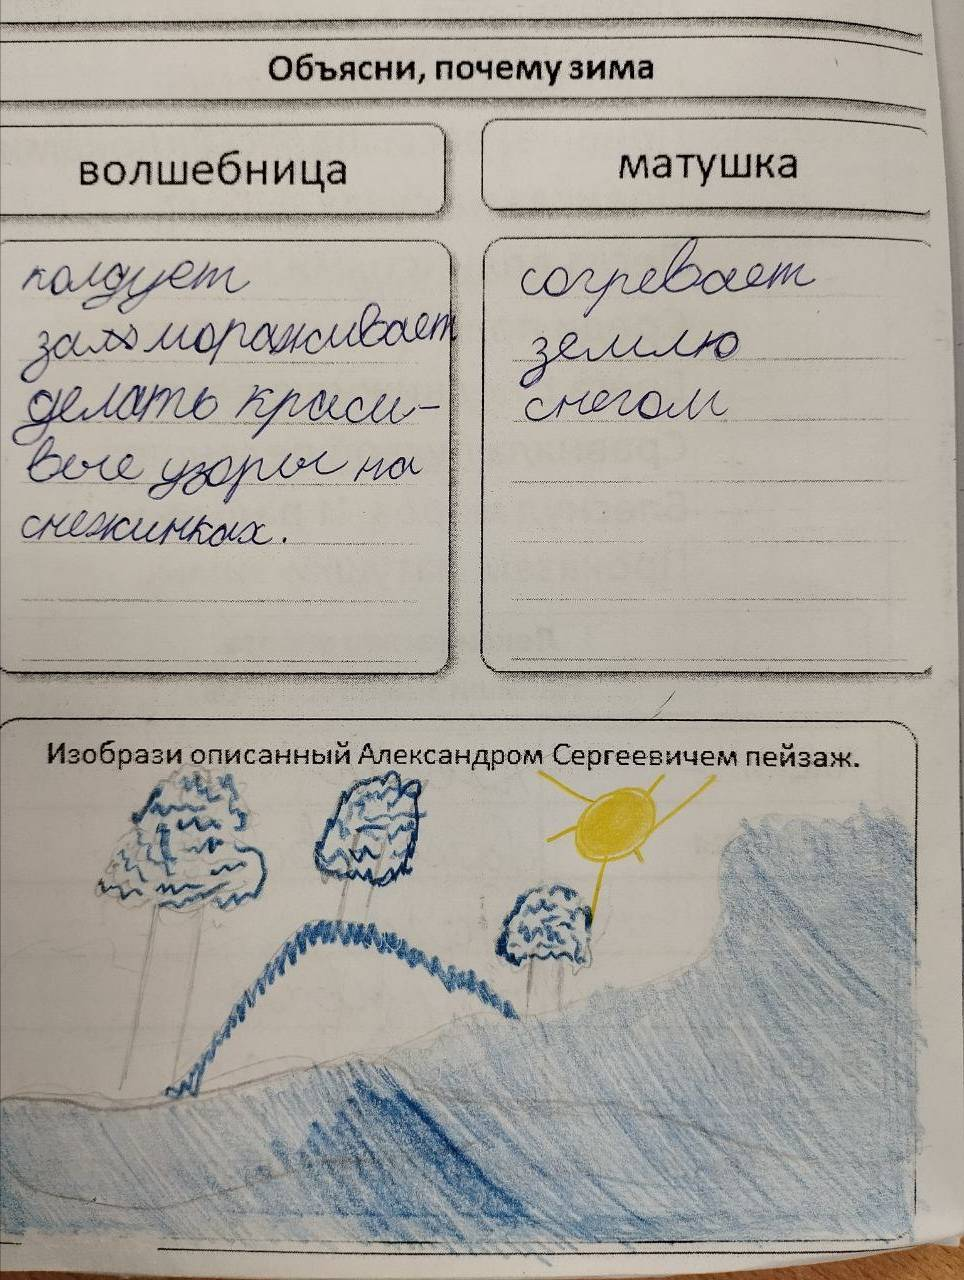 Объясни, почему зима
волшебница
матушка
колдует
замораживает
делать краси-
вые узоры на
снежинках.
согревает
землю
снегом
Изобрази описанный Александром Сергеевичем пейзаж.